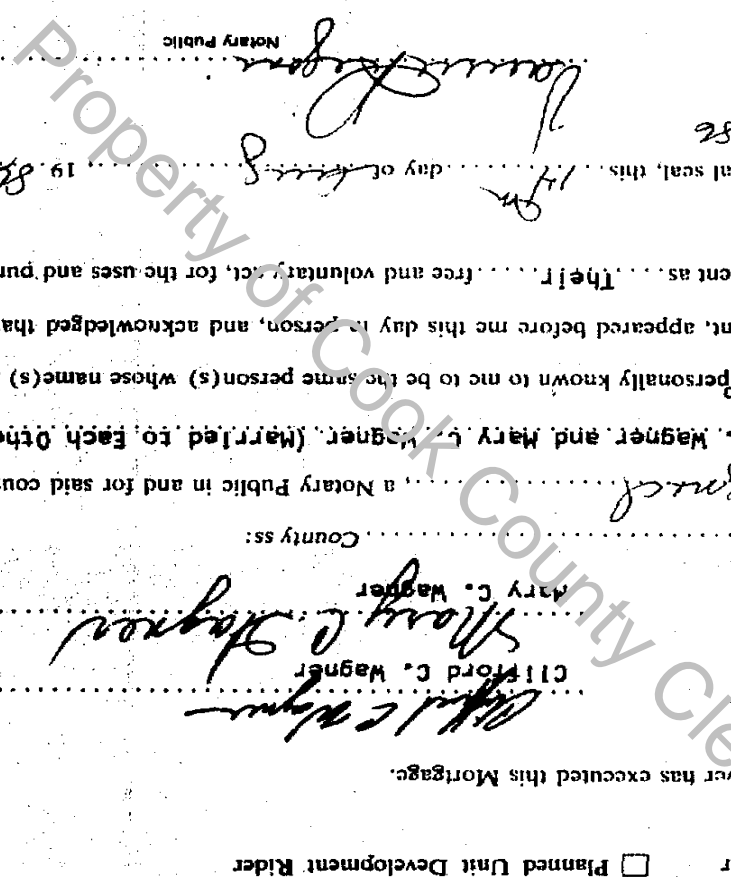 r ☐ Planned Unit Development Rider
ver has executed this Mortgage.
Clifford C Wagner
Clifford C. Wagner
Mary C. Wagner
Mary C. Wagner
County ss:
, a Notary Public in and for said coun
. Wagner and Mary C. Wagner (Married to Each Othe
personally known to me to be the same person(s) whose name(s)
nt, appeared before me this day in person, and acknowledged that
ent as....Their.....free and voluntary act, for the uses and pur
al seal, this....14......day of Aug........, 19.86
86
Notary Public
Property of Cook County Cle